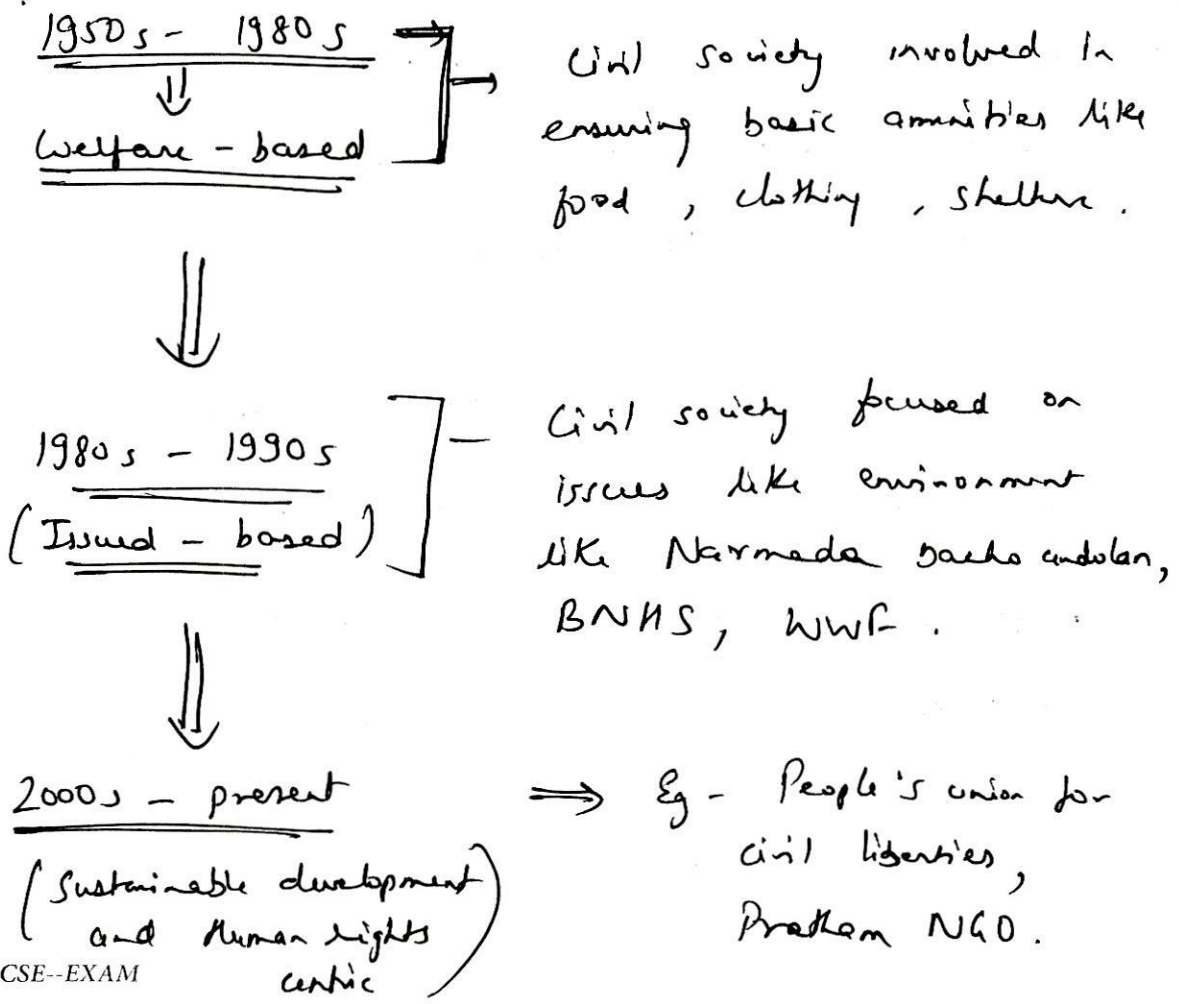 1950s - 1980s
Welfare - based
Civil society involved in
ensuring basic amenities like
food, clothing, shelter.
1980s - 1990s
(Issued - based)
Civil society focused on
issues like environment
like Narmada bacho andolan,
BNHS, WWF.
2000s - present
(Sustainable development
and Human rights
centric)
Eg - People's union for
civil liberties,
Pratham NGO.
CSE--EXAM